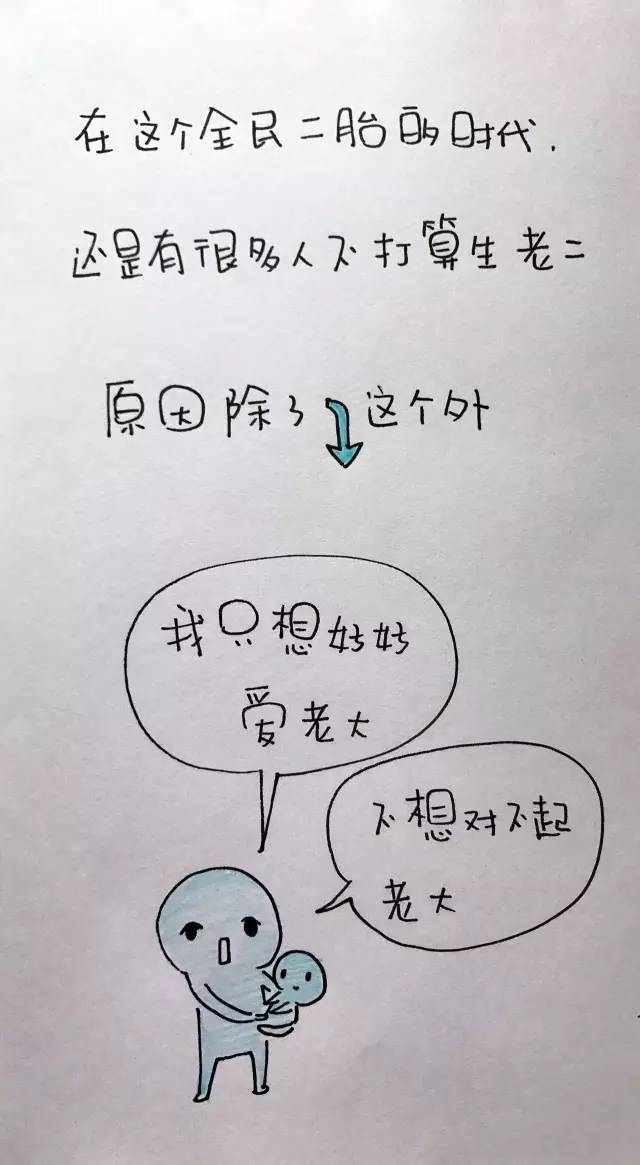 在这个全民二胎的时代.
还是有很多人不打算生老二
原因除了这个外
我只想好好
爱老大
不想对不起
老大